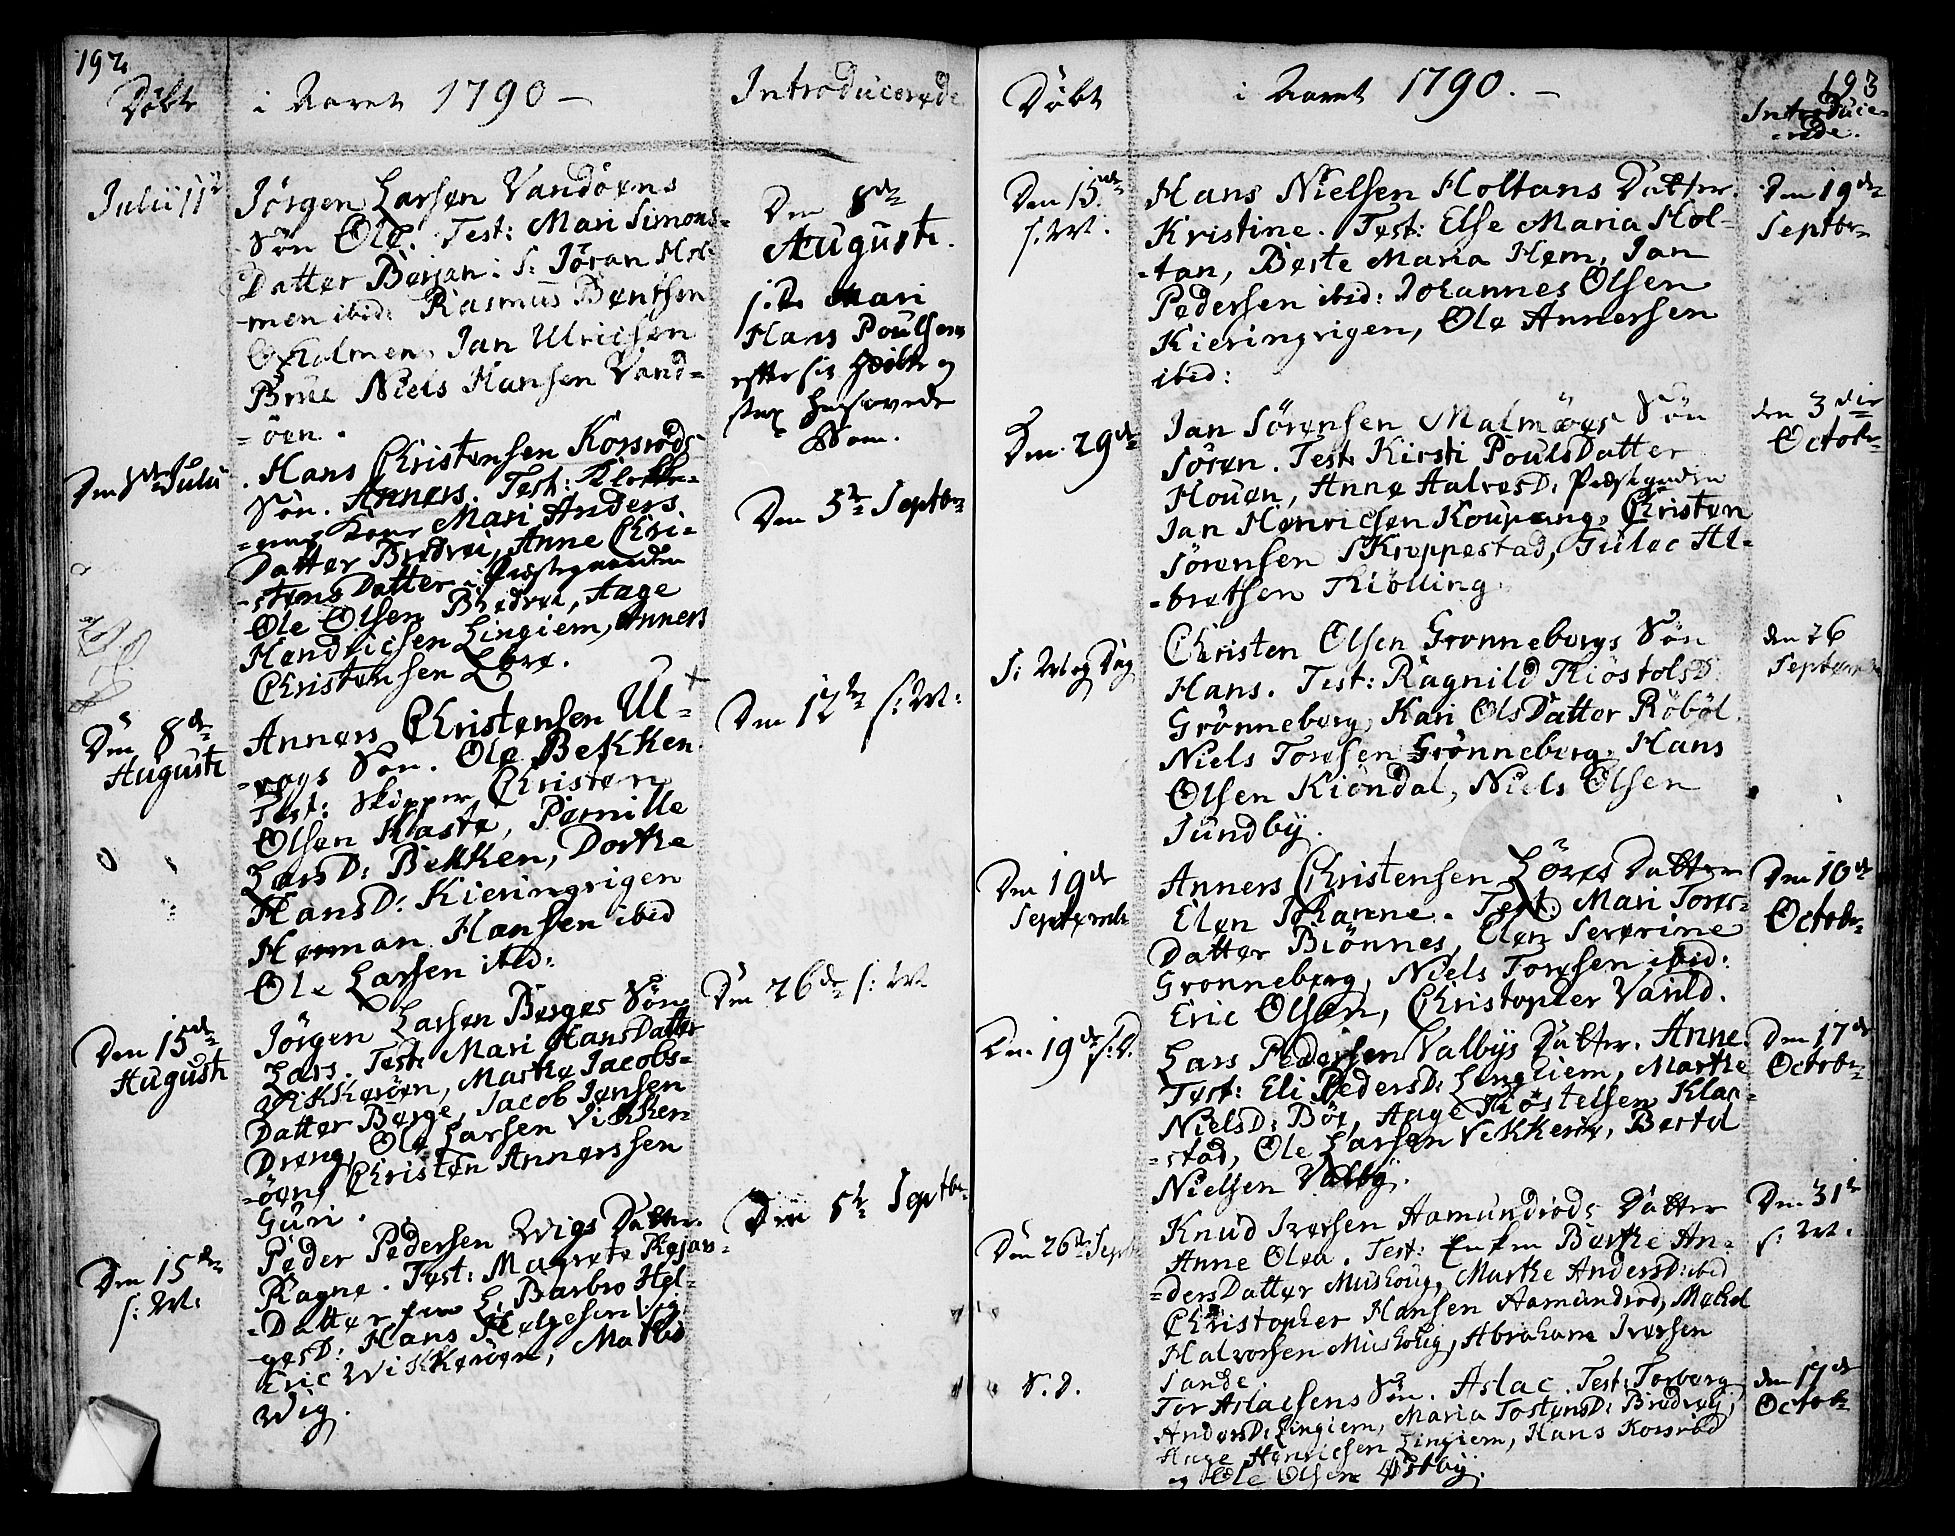 192
Döbt
i Aaret 1790 –
Introducerede
Julii 11te
Jörgen Larsen Vandöens
Sön Ole. Test: Mari Simons-
Datter Berjan: S: Jöran Hol-
men ibid: Rasmus Bentsen
Holmen, Jan Ulricsen
Brue Niels Hansen Vand=
=öen.
Den 8de
Augusti.
s: D. Mari
Hans Poulsens
efter sit
Sön.
Den Julii
Hans Christensen Korsröds
Sön. Anners. Test: Klokke=
=rens Kone Mari Anders
Datter Bredvei, Anne Chri-
=stens Datter i Præstegaarden
Ole Olsen Bredvei, Aage
Hendricsen Lingiem, Anners
Christensen Ebre.
Den 5te Septbr
Den 8de
Augusti
Anners Christensen Ul=
=vogs Sön. Ole Bekken.
Test: Skipper Christen
Olsen Klaste, Pernille
LarsD: Bekken, Dorthe
HansD: Kieringvigen
Herman Hansen ibid
Ole Larsen ibid:
Den 12te s: M:
Den 15de
Augusti
Jörgen Larsen Berges Sön
Lars. Test: Mari HansDatter
Vikkeröen, Marthe Jacobs=
Datter Berge, Jacob Jensen
Dreng, Ole Larsen Vikker=
=öen, Christen Annerssen
Guri.
Den 26de s: M
Den 15de
s: M:
Peder Pedersen Wigs Datter
Ragne. Test: Magrete Rejar=
=Datter Barbro Hel=
=gesD: Hans Helgesen Vig
Eric Wikkeröen, Mathis
Wig.
Den 5te Septbr
193
Döbt
i Aaret 1790. –
Introduce=
=rede.
Den 15de
s: M.
Hans Nielsen Holtans Datter
Kristine. Test: Else Maria Hol=
=tan, Berte Maria Hem, Jan
Pedersen ibid: Johannes Olsen
Kieringvigen, Ole Annersen
ibid:
Den 19de
Septbr
Den 29de
Jan Sörensen Malmöes Sön
Sören. Test: Kirsti PoulsDatter
Houen, Anne AalvesD: Præstgaarden
Jan Henricsen Koupang, Christen
Sörensen Skroppestad, Gulec Al=
=bretsen Thiölling.
den 3die
Octob
s: M og Dag
Christen Olsen Grönnebergs Sön
Hans. Test: Ragnild ThiöstolsD.
Grönneberg, Kari OlsDatter Röböl.
Niels Toresen Grönneberg, Hans
Olsen Kiöndal, Niels Olsen
Sundby.
den 26
September
Den 19de
Septemb
Anners Christensen Löves Datter
Elen Johanne. Test: Mari Tores=
Datter Biönnes, Elen Severine
Gronneberg, Niels Toresen ibid:
Eric Olsen, Christopher Varild.
Den 10de
Octob
Den 19de s: D.
Lars Pedersen Valbys Datter. Anne.
Test: Eli PedersD: Lingiem, Marthe
NielsD: Böe, Aage Kiöstelsen Klaa=
=stad, Ole Larsen Vekkeröe, Bertel
Nielsen Valby.
Den 17de
Octob
Den 26de Sept
Knud Iversen Aamundröds Datter
Anne Olea. Test: Enken Berthe An=
=dersDatter Mushoug, Marthe AndersD: ibid
Christopher Hansen Aamundrod, Mekel
Halvorsen Mushoug, Abraham Iversen
Sande.
Den 31te
s: M.
S. D.
Tor Aslacsens Sön. Aslac. Test: Torborg
AndersD: Lingiem, Maria TostensD: Bredvej,
Hage Henricsen Lingiem, Hans Korsröd
og Ole Olsen Östby.
den 17de
Octob